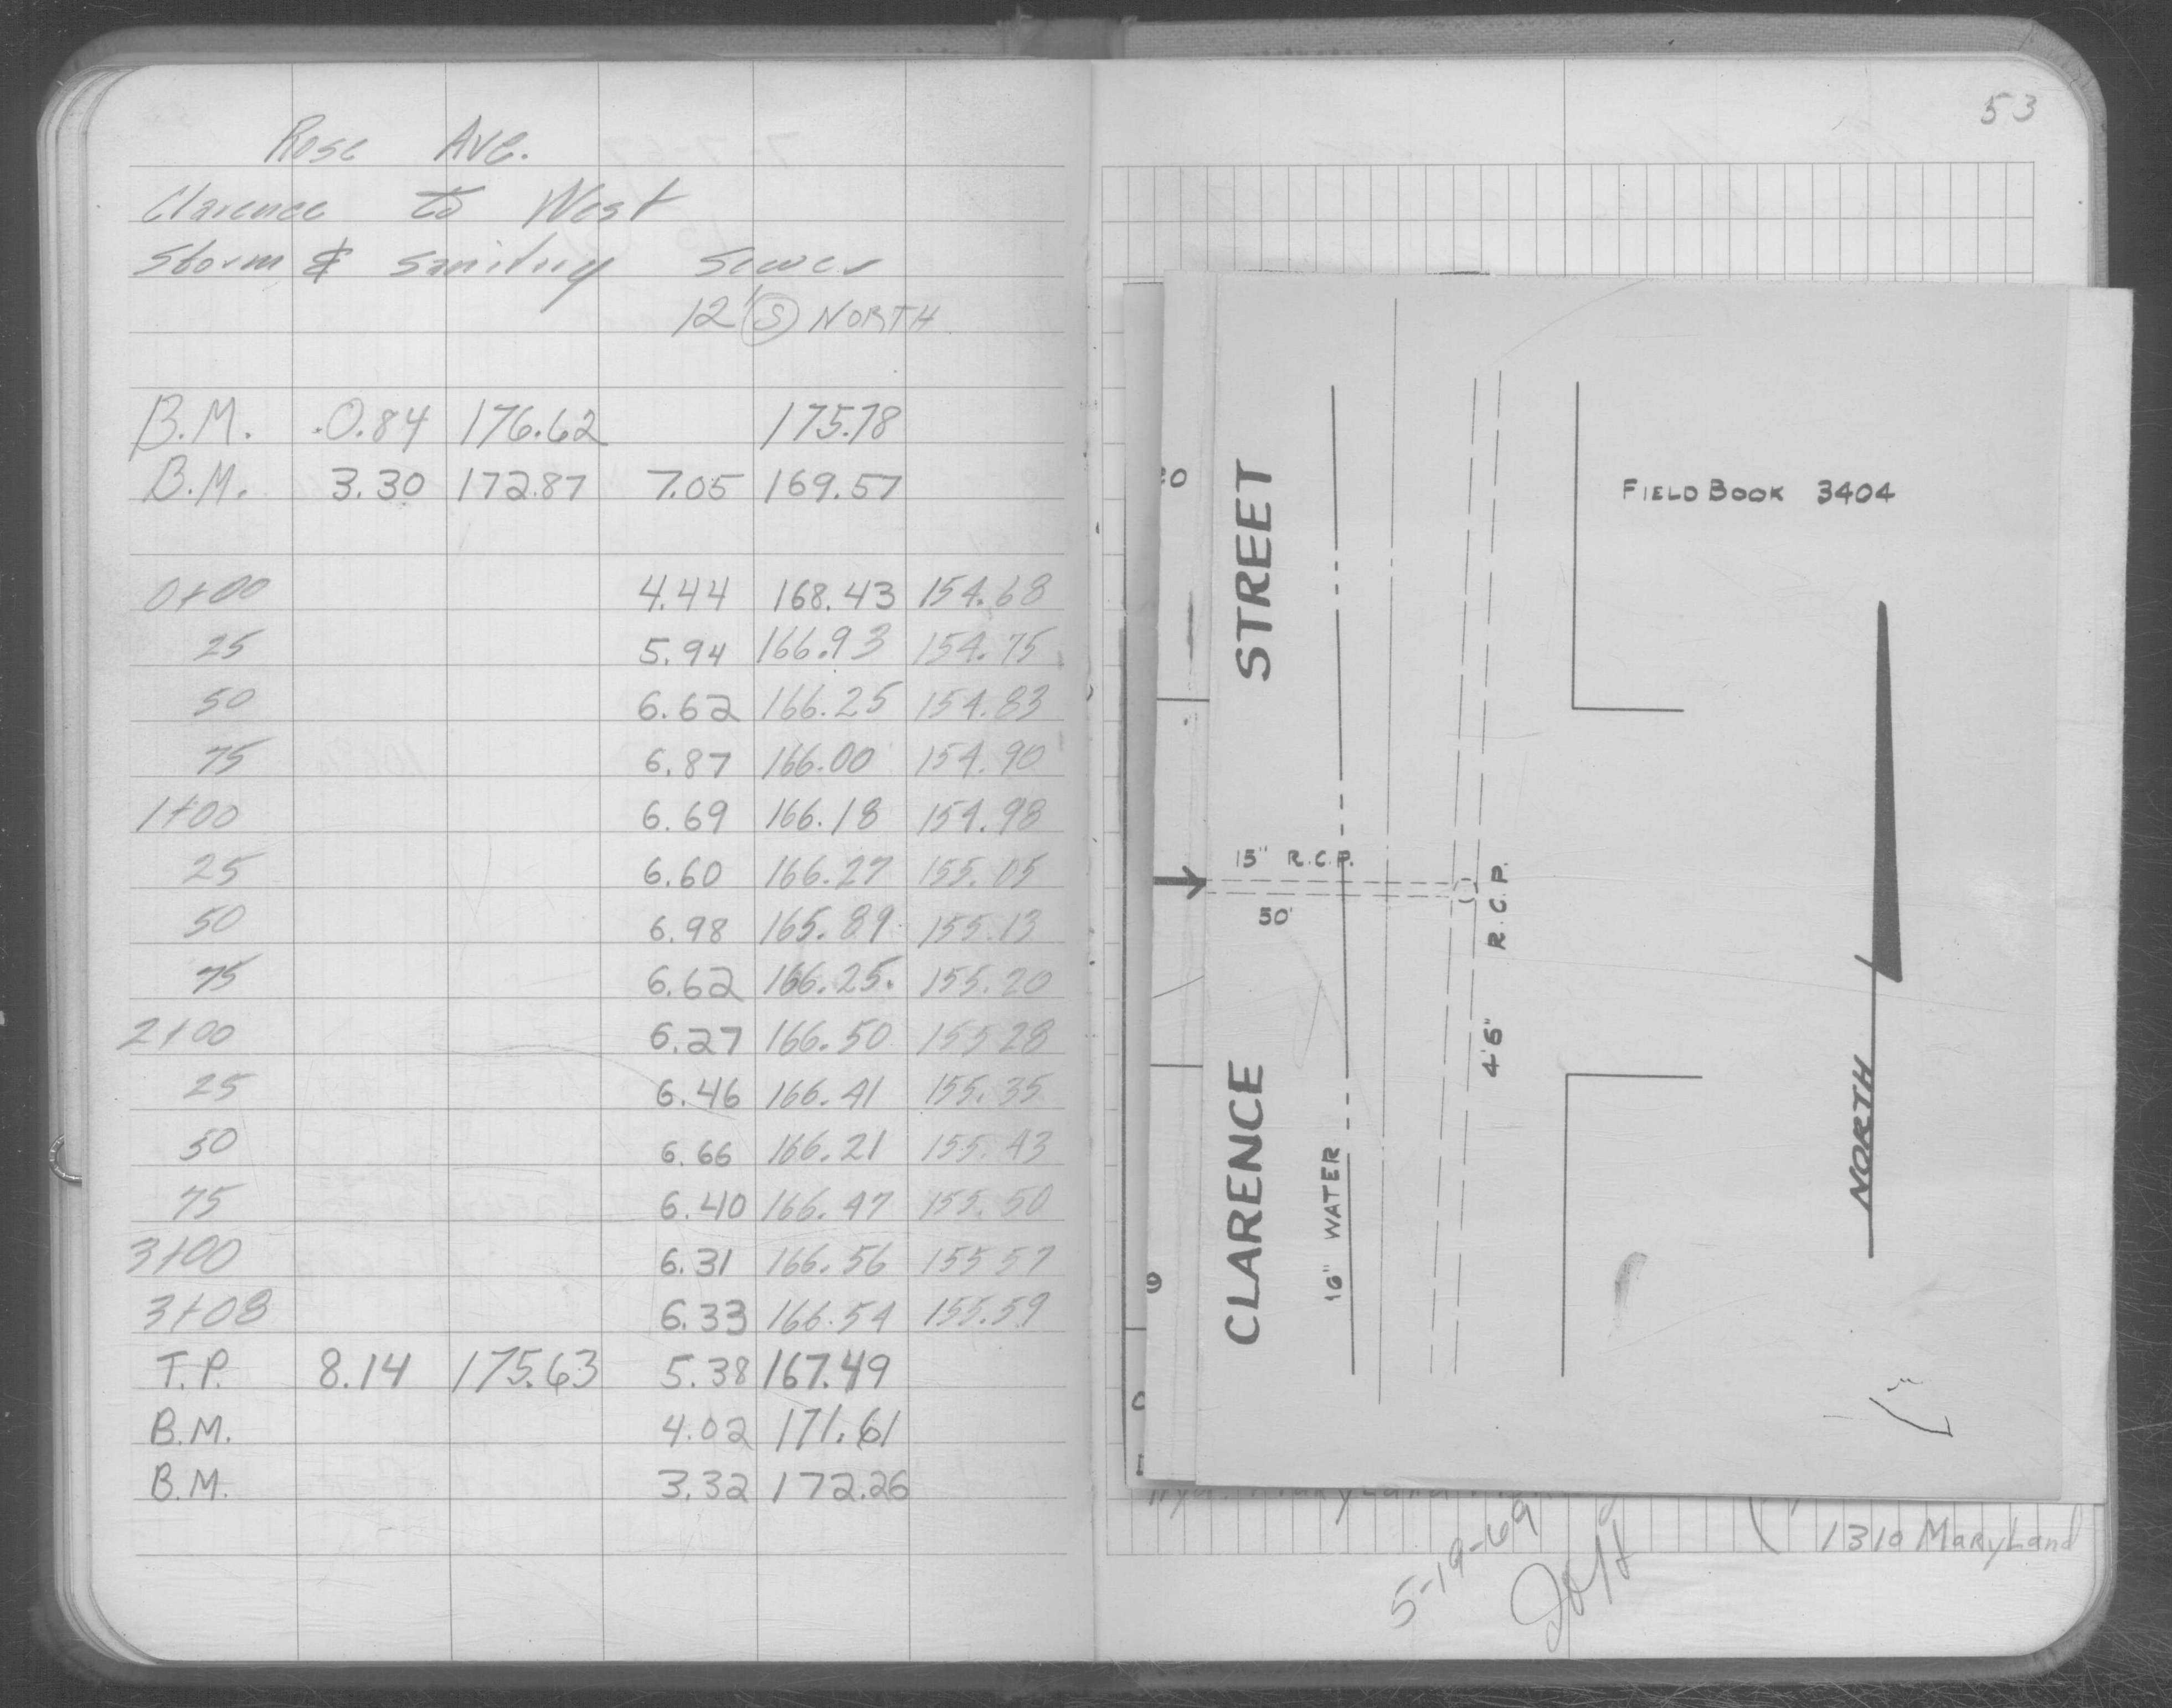 Rose Ave.
Clarence to West
Storm & Sanitary Sewer
12' (S) NORTH
B.M. 0.84 176.62 175.78
B.M. 3.30 172.87 7.05 169.57
0+00 4.44 168.43 154.68
25 5.94 166.93 154.75
50 6.62 166.25 154.83
75 6.87 166.00 154.90
1+00 6.69 166.18 154.98
25 6.60 166.27 155.05
50 6.98 165.89 155.13
75 6.62 166.25 155.20
2+00 6.27 166.50 155.28
25 6.46 166.41 155.35
50 6.66 166.21 155.43
75 6.40 166.47 155.50
3+00 6.31 166.56 155.57
3+08 6.33 166.54 155.59
T.P. 8.14 175.63 5.38 167.49
B.M. 4.02 171.61
B.M. 3.32 172.26
53
FIELD BOOK 3404
CLARENCE STREET
15" R.C.P.
50'
4'6" R.C.P.
16" WATER
NORTH
1310 MaryLand
5-19-69